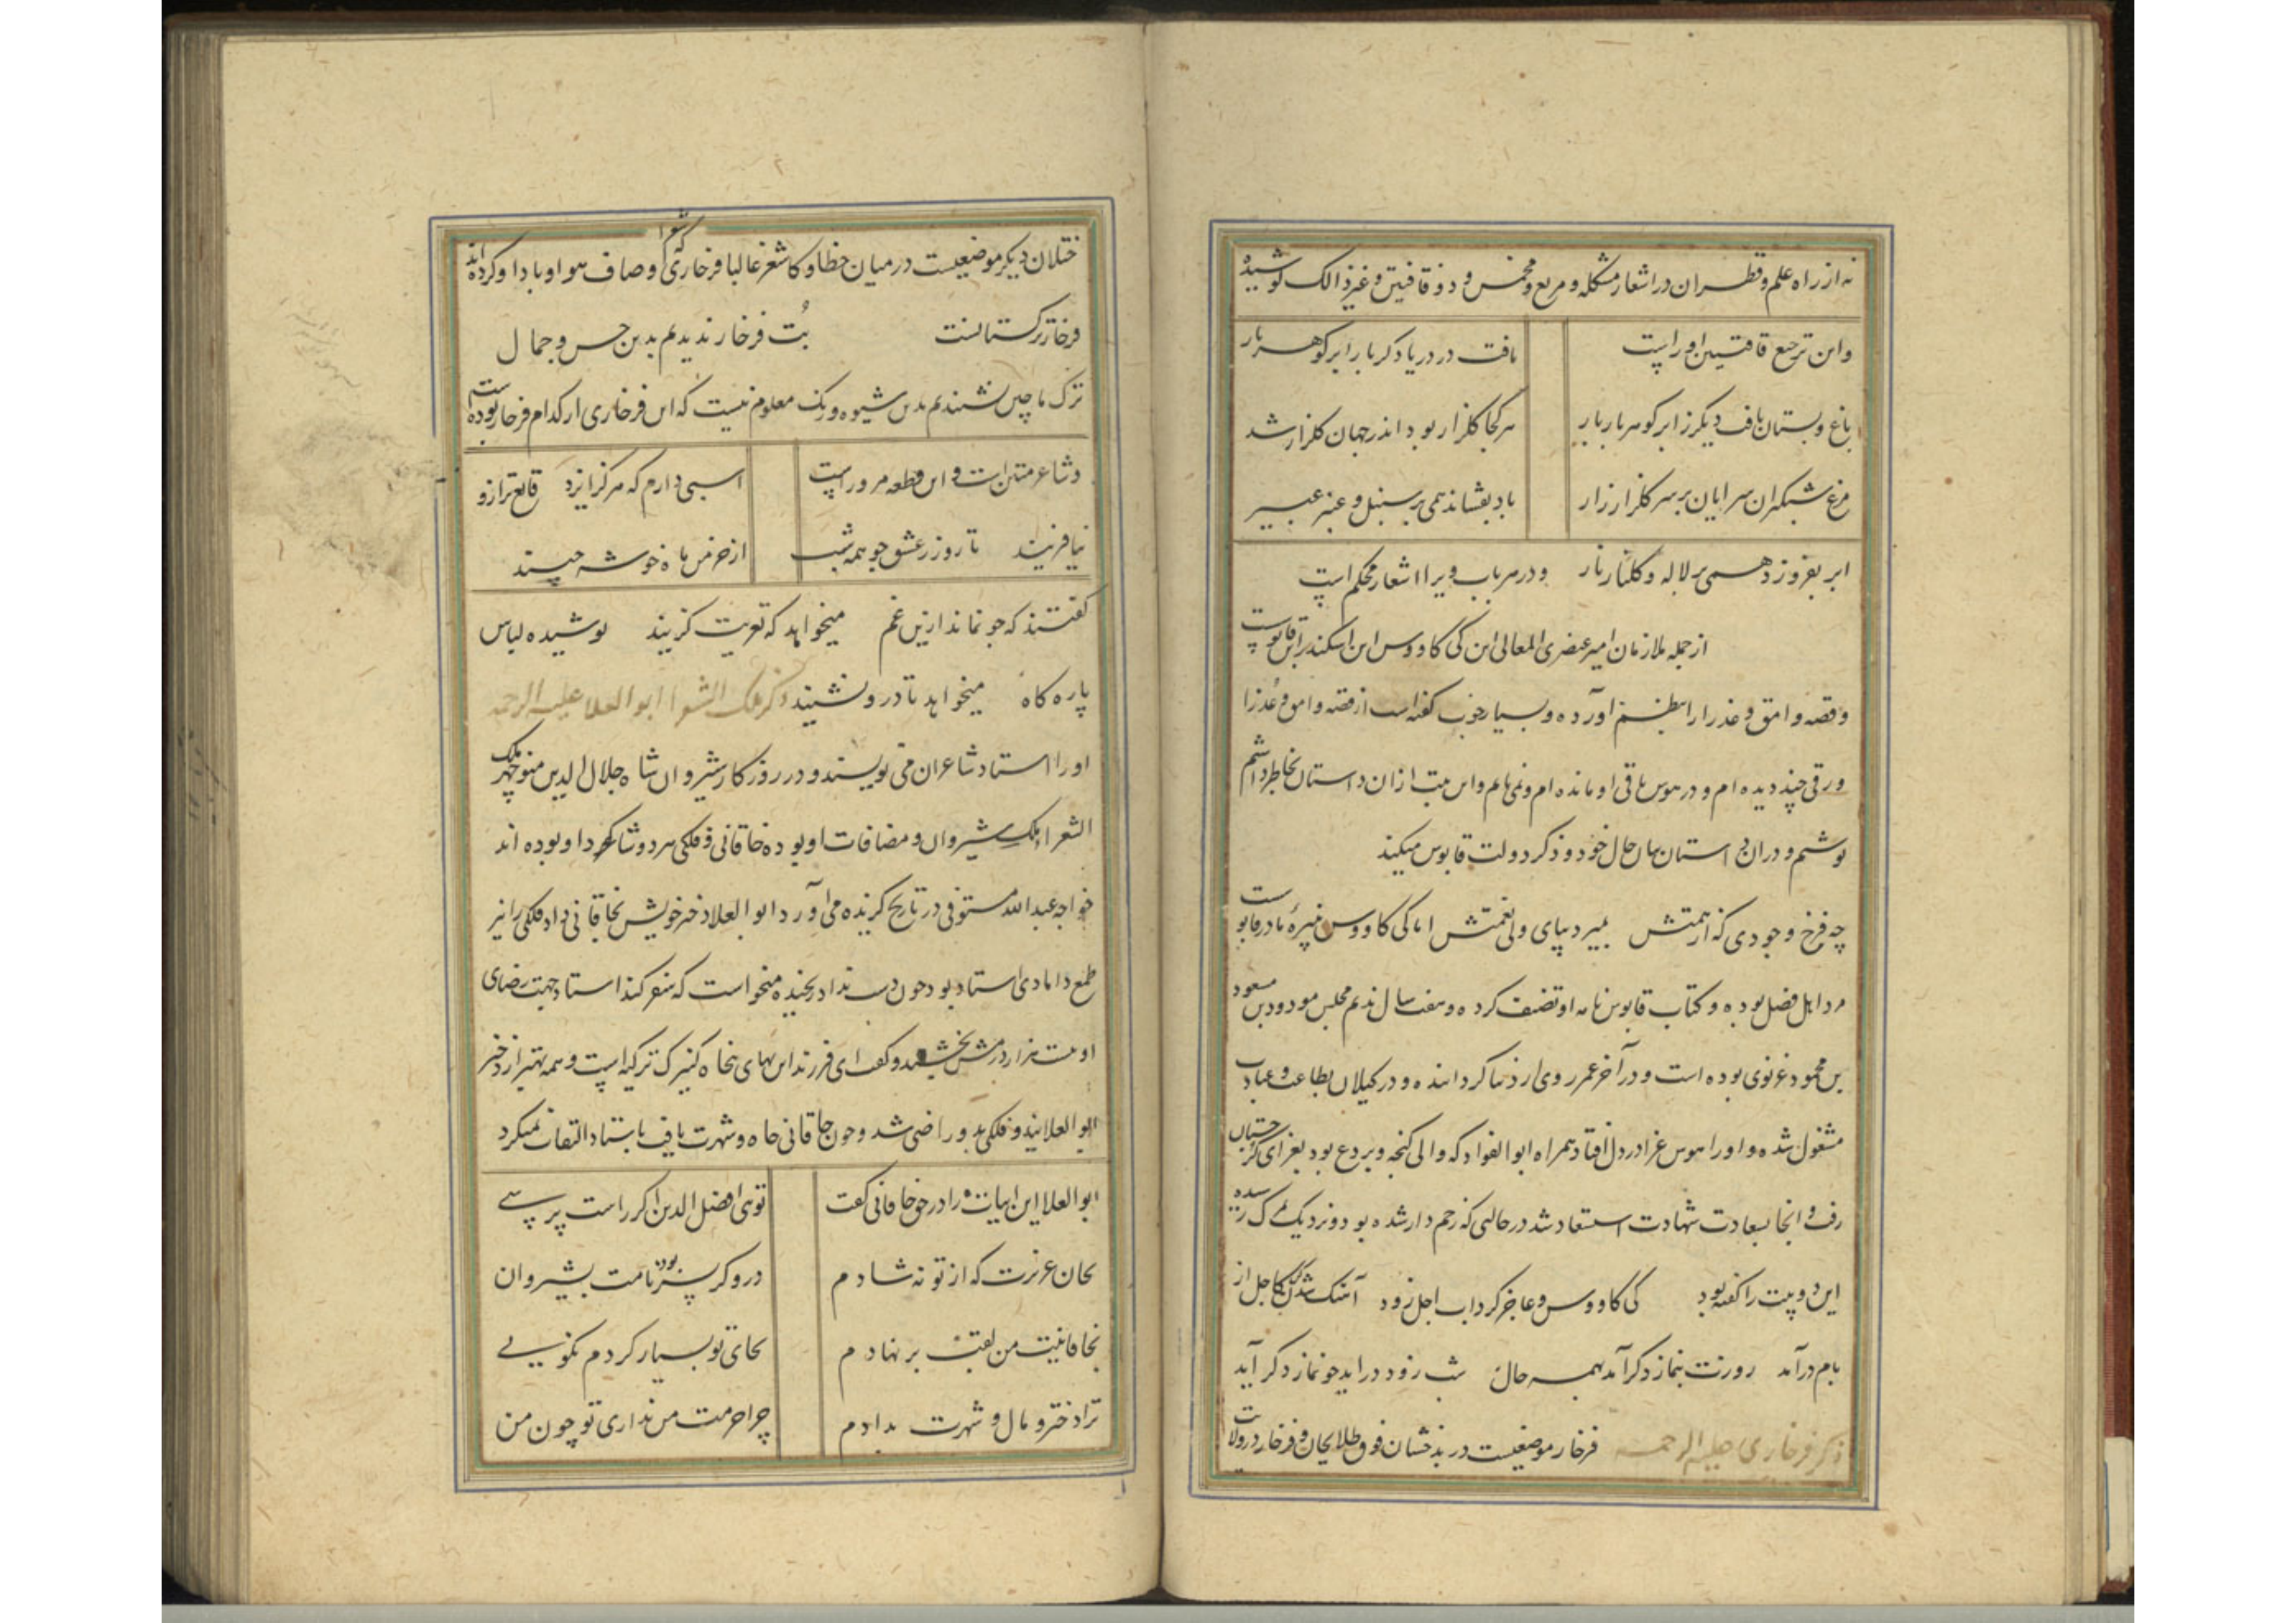 نه از راه علم و قطران در اشعار مشکله و مربع و مخمس و ذوقافیتین و غیر ذالک کوشیده
و این ترجیع قافیتین او راست یافت در دریا دکر بار ابر کوهر بار
باغ و بستان یافت دیکر ز ابر کوهر بار بار هر کجا کلزار بود اندر جهان کلزار شد
مرغ شبکیران سرایان بر سر کلزار زار باد بفشاند همی بر سنبل و عنبر عبیر
ابر بفروزد همی بر لاله و کلنار نار و در هر باب ویرا اشعار محکم است
از جمله ملازمان امیر عنصری المعالی ابن کی کاووس ابن اسکندر ابن قابوست
و قصه وامق و عذرا را بنظم آورده و بسیار خوب کفته است از قصه وامق و عذرا
ورقی چند دیده ام و در هوس باقی او مانده ام و نمی یابم و این بیت از ان داستان بخاطر داشتم
نوشتم و دران داستان بیان حال خود و ذکر دولت قابوس میکند
چه فرخ وجودی که از همتش بمیرد بپای ولی نعمتش اما کی کاووس نبیره مادر قابوست
مرد اهل فضل بوده و کتاب قابوس نامه او تصنیف کرده و هفت سال ندیم مجلس مودود بن مسعود
بن محمود غزنوی بوده است و در آخر عمر روی از دنیا کردانیده و در کیلان بطاعت و عبادت
مشغول شده و او را هوس غزا در دل افتاد همراه ابوالفواد که والی کنجه و بردع بود بغزای کرجستان
رفت و انجا بسعادت شهادت استسعاد شد در حالتی که زخم دار شده بود و نزدیک بمرک رسیده
این دو بیت را کفته بود کی کاووس و عاجز کرداب اجل زود آهنک شدن کن که اجل از
بام درآمد روزت بنماز دکر آمد بهمه حال شب زود دراید چو نماز دکر آید
ذکر فرخاری علیه الرحمه فرخار موضعیست در بذخشان فوق طلایجان و فرخار در ولایت
ختلان دیکر موضعیست در میان خطا و کاشغر غالبا فرخاری که شعرا وصاف هوا و باد او کرده اند
فرخار ترکستانست بُت فرخار ندیدم بدین حسن و جمال
ترک ماچین نشنیدم بدین شیوه و رنک معلوم نیست که این فرخاری از کدام فرخار بوده ست
و شاعر متین است و این قطعه مر وراست اسبی دارم که هرکز ایزد قانع تر ازو
نیافریند تا روز ز عشق جو همه شب از خرمن ماه خوشه چیند
کفتند که جو نماند ازین غم میخواهد که تعزیت کزیند پوشیده لباس
پاره کاه میخواهد تا درو نشیند ذکر ملک الشعرا ابوالعلا علیه الرحمه
او را استاد شاعران می نویسند و در روزکار شیروان شاه جلال الدین منوچهر ملک
الشعرا ملک شیروان و مضافات او بوده خاقانی و فلکی هر دو شاکرد او بوده اند
خواجه عبدالله مستوفی در تاریخ کزیده می آورد ابوالعلا دختر خویش بخاقانی داد فلکی را نیز
طمع دامادی استاد بود چون دست نداد رنجیده میخواست که سفر کند استاد جهت رضای
او بیست هزار درمش بخشید و کفت ای فرزند این بهای پنجاه کنیرک ترکیه است و همه بهتر از دختر
ابوالعلا ینذ و فلکی بدو راضی شد و چون خاقانی جاه و شهرت یافت باستاد التفات نمیکرد
ابوالعلا این ابیات را در حق خاقانی کفت توی افضل الدین اکر راست پرسی
بجان عزیزت که از تو نه شادم دروکر پسر بود نامت بشیروان
بخاقانیت من لقب بر نهادم بجای تو بسیار کردم نکویی
ترا دختر و مال و شهرت بدادم چرا حرمت من نداری تو چون من